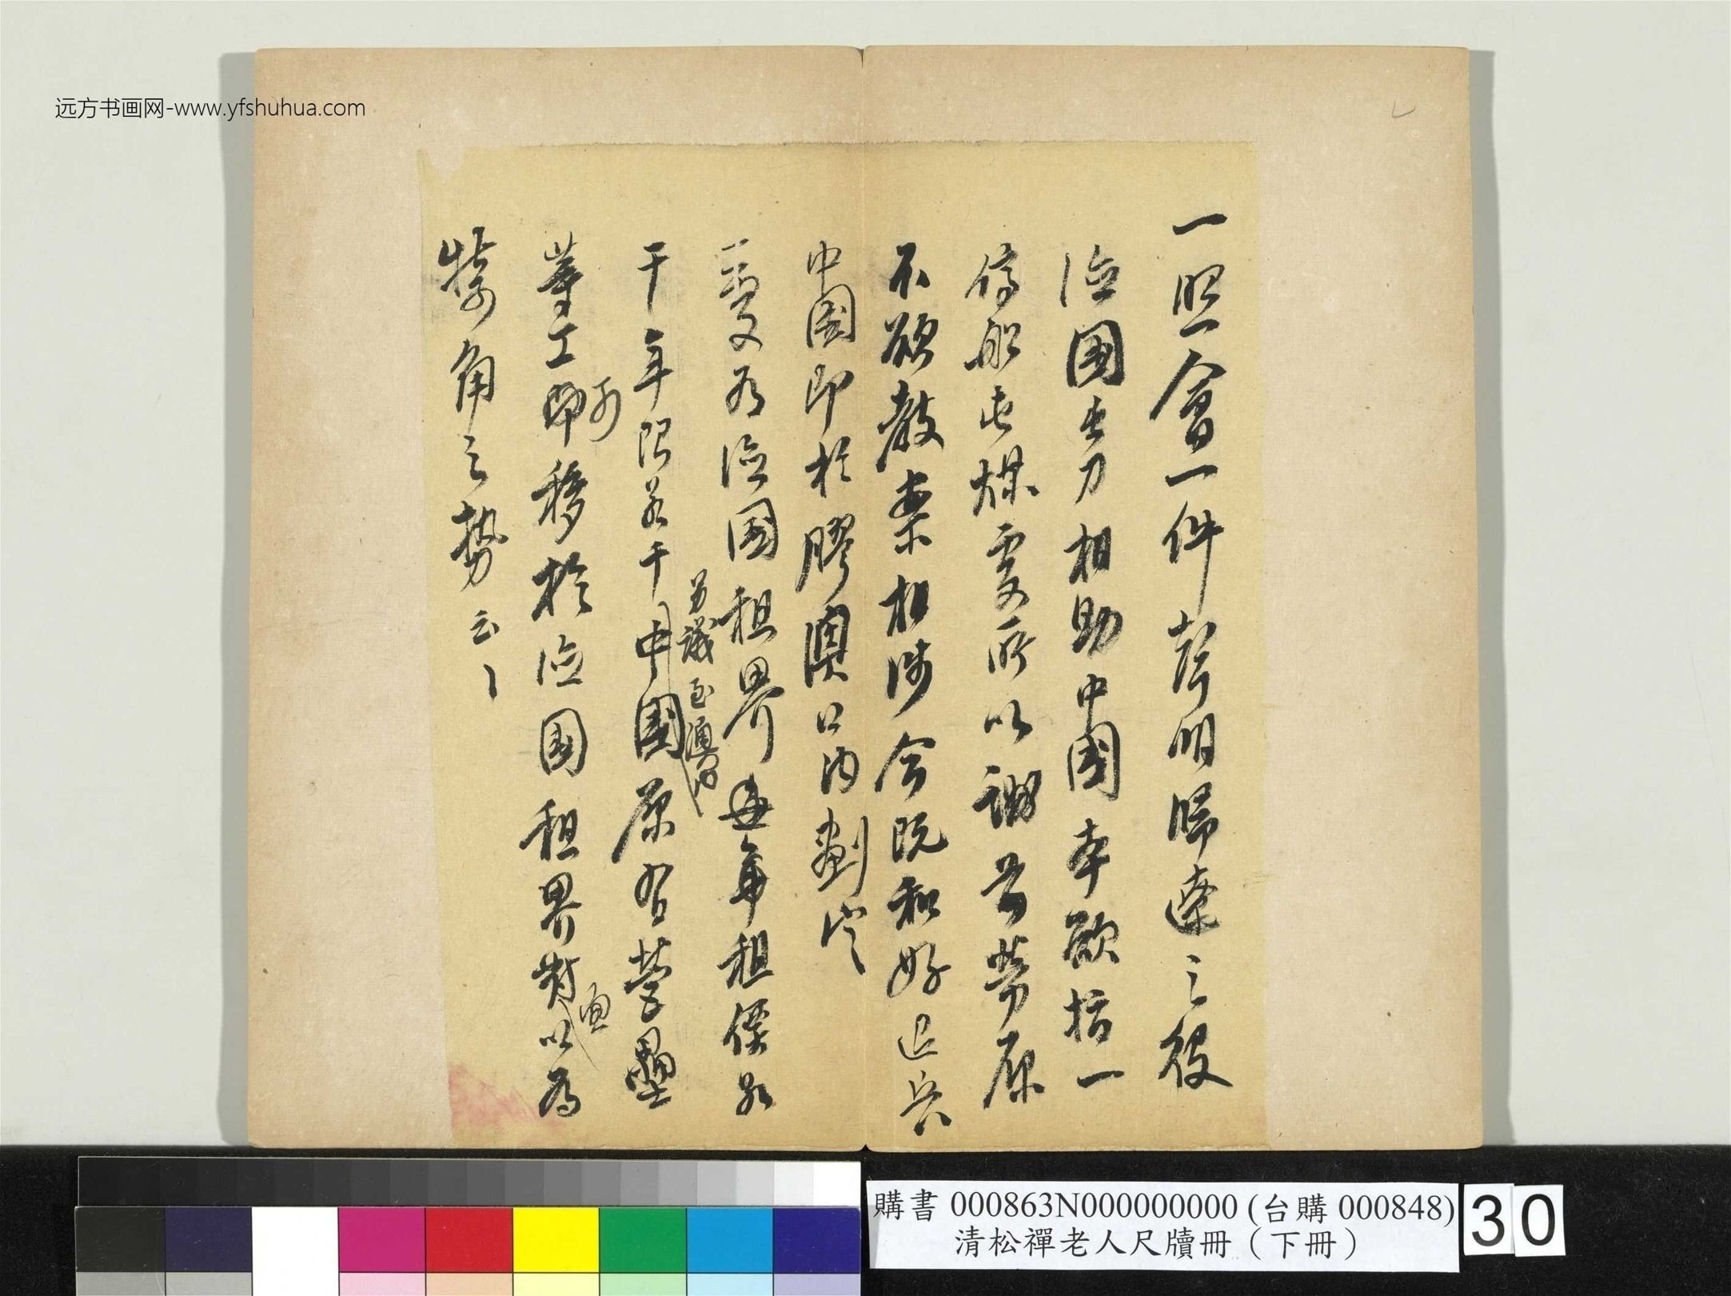 远方书画网-www.yfshuhua.com
一照會一件聲明歸遼之役
德國出力相助中國本欲指一
停船屯煤處所以酬前勞原
不欲教案相涉今既和好退兵
中國即於膠澳口內劃定
一處為德國租界每年租價若
干年限若干另議至澳內中國原有營壘
等工可即移於德國租界對面以為
犄角之勢云云
購書 000863N000000000 (台購 000848)
清松禪老人尺牘冊（下冊）
30